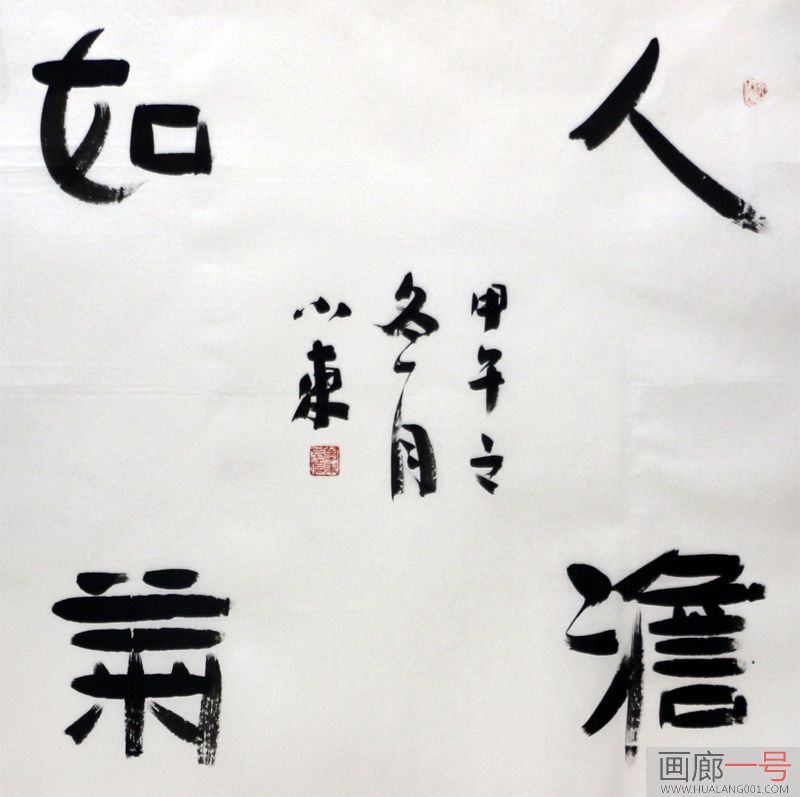 人澹
如菊
甲午之
冬月
小東
画廊一号
WWW.HUALANG001.COM